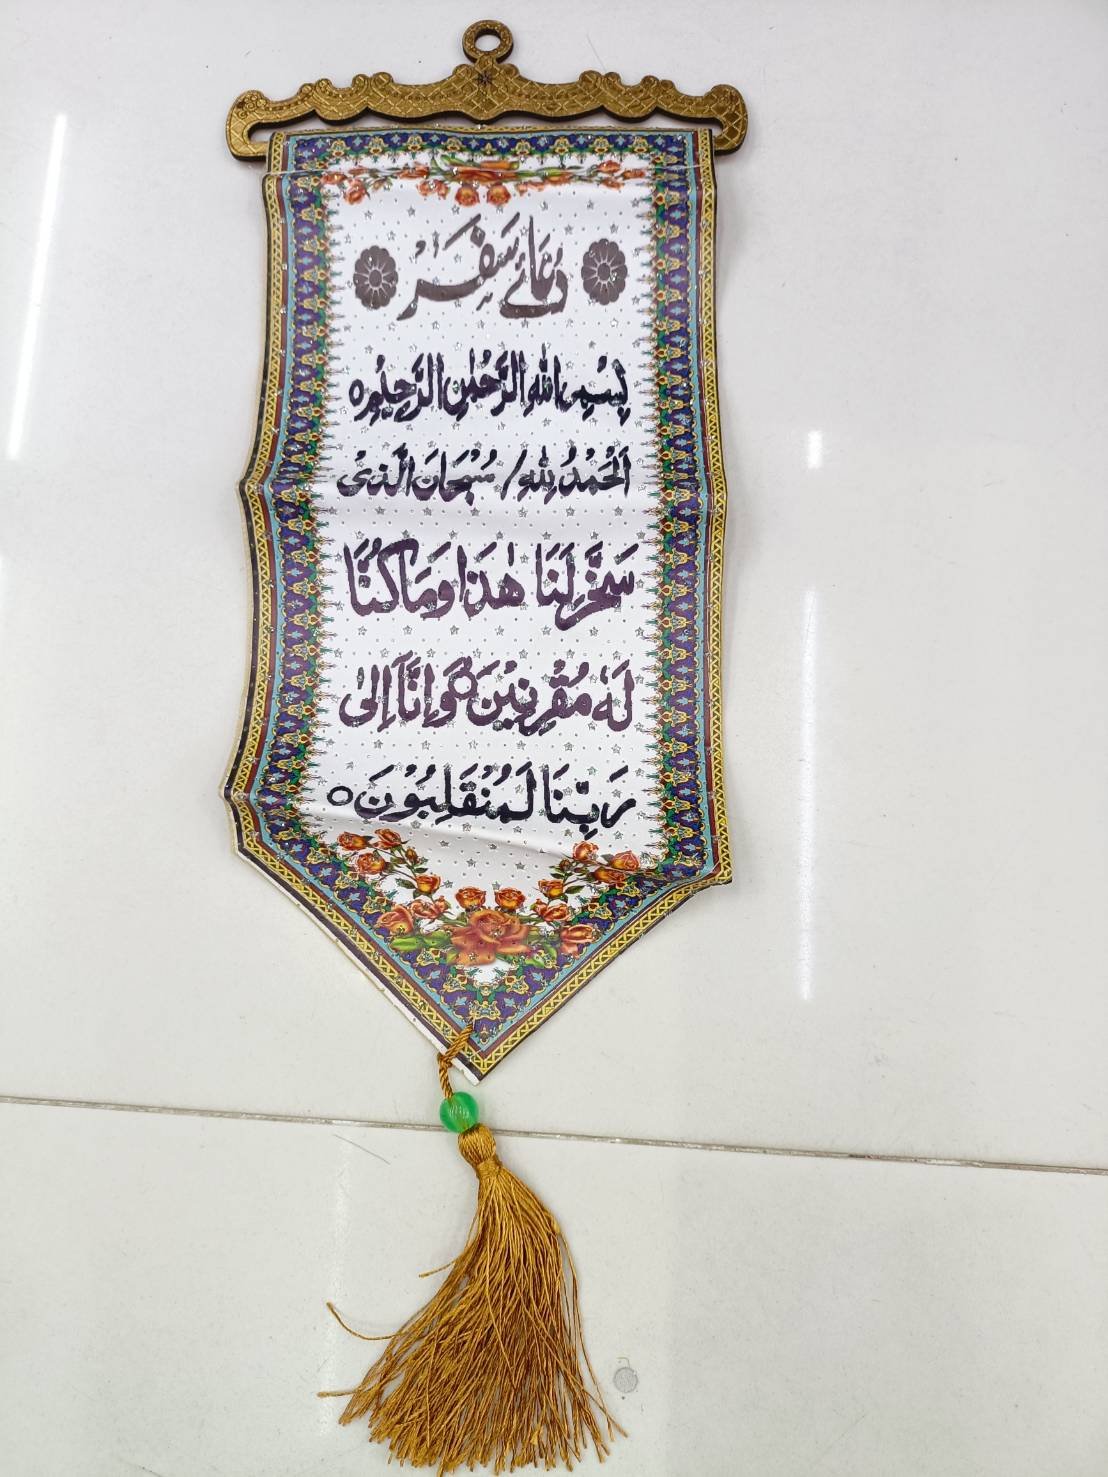 دُعَائے سَفَرْ
بِسْمِ اللهِ الرَّحْمٰنِ الرَّحِيْمِ ○
اَلْحَمْدُ لِلّٰهِ / سُبْحَانَ الَّذِىْ
سَخَّرَ لَنَا هٰذَا وَمَا كُنَّا
لَهٗ مُقْرِنِيْنَ ○ وَاِنَّآ اِلىٰ
رَبِّنَا لَمُنْقَلِبُوْنَ ○